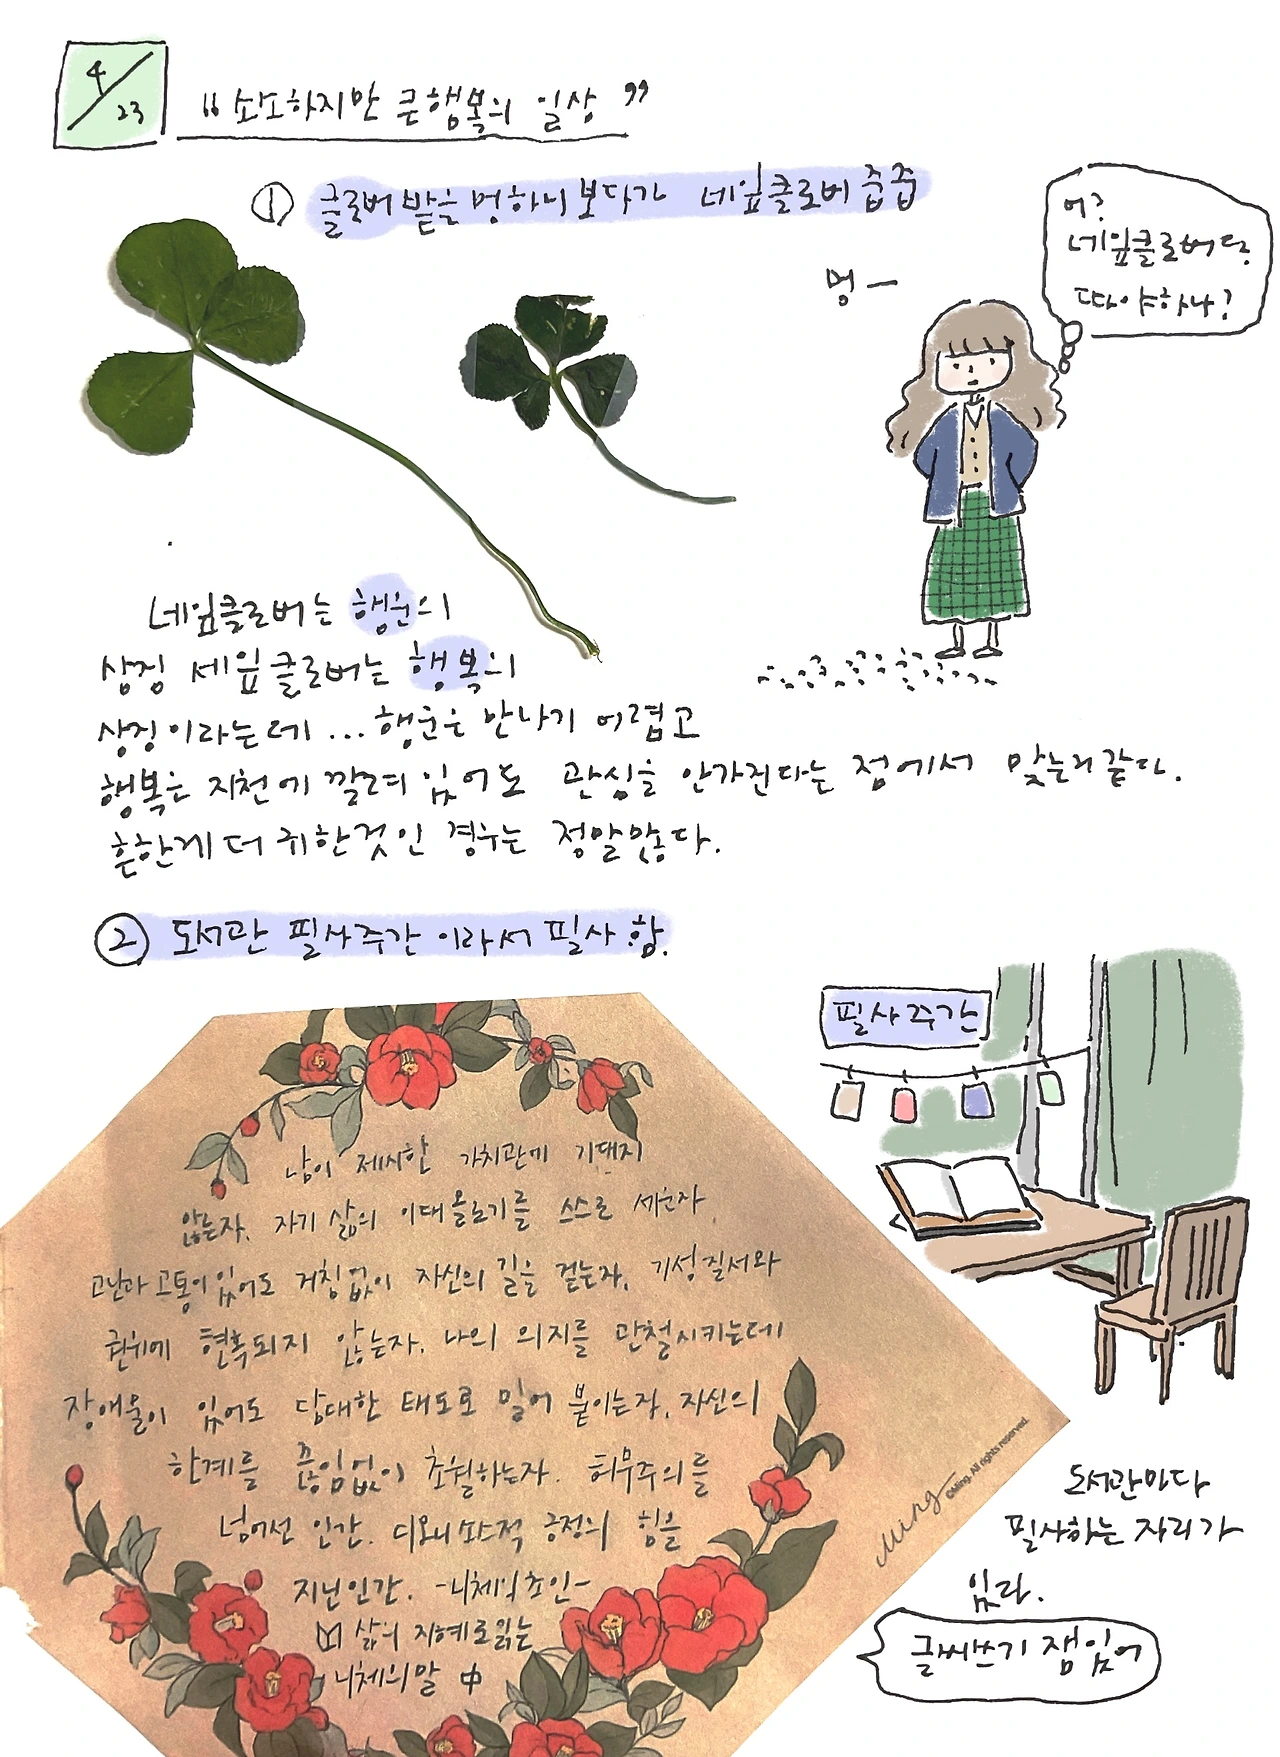 4/23
“소소하지만 큰행복의 일상”
① 클로버 밭을 멍하니 보다가 네잎클로버 줍줍
멍 —
어?
네잎클로버당
따야하나?
네잎클로버는 행운의
상징 세잎클로버는 행복의
상징이라는데 ... 행운은 만나기 어렵고
행복은 지천에 깔려 있어도 관심을 안가진다는 점에서 맞는거같다.
흔한게 더 귀한것인 경우는 정말많다.
② 도서관 필사주간 이라서 필사함.
필사주간
남이 제시한 가치관에 기대지
않는자. 자기 삶의 이데올로기를 스스로 세운자.
고난과 고통이 있어도 거침없이 자신의 길을 걷는자. 기성질서와
권위에 현혹되지 않는자. 나의 의지를 관철시키는데
장애물이 있어도 담대한 태도로 밀어 붙이는자. 자신의
한계를 끊임없이 초월하는자. 허무주의를
넘어선 인간. 디오니소스적 긍정의 힘을
지닌인간. -니체의초인-
삶의 지혜로읽는
니체의말 中
Ming
©Ming. All rights reserved.
도서관마다
필사하는 자리가
있다.
글씨쓰기 잼있어